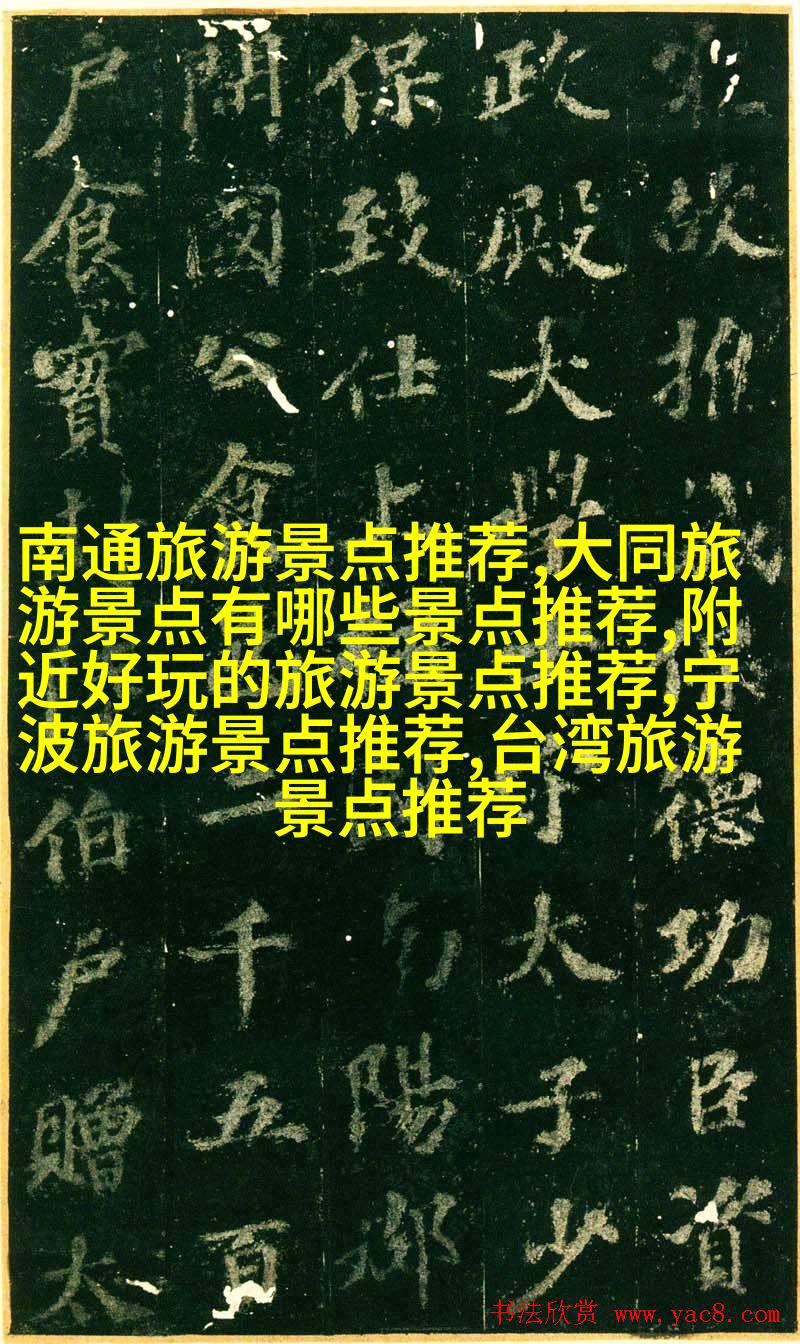 南通旅游景点推荐,大同旅
游景点有哪些景点推荐,附
近好玩的旅游景点推荐,宁
波旅游景点推荐,台湾旅游
景点推荐
故推誠保德功臣資
政殿大學太子少
保致仕上陽郡
開國公食千五百
戶食實伯戶贈太
书法欣赏 www.yac8.com